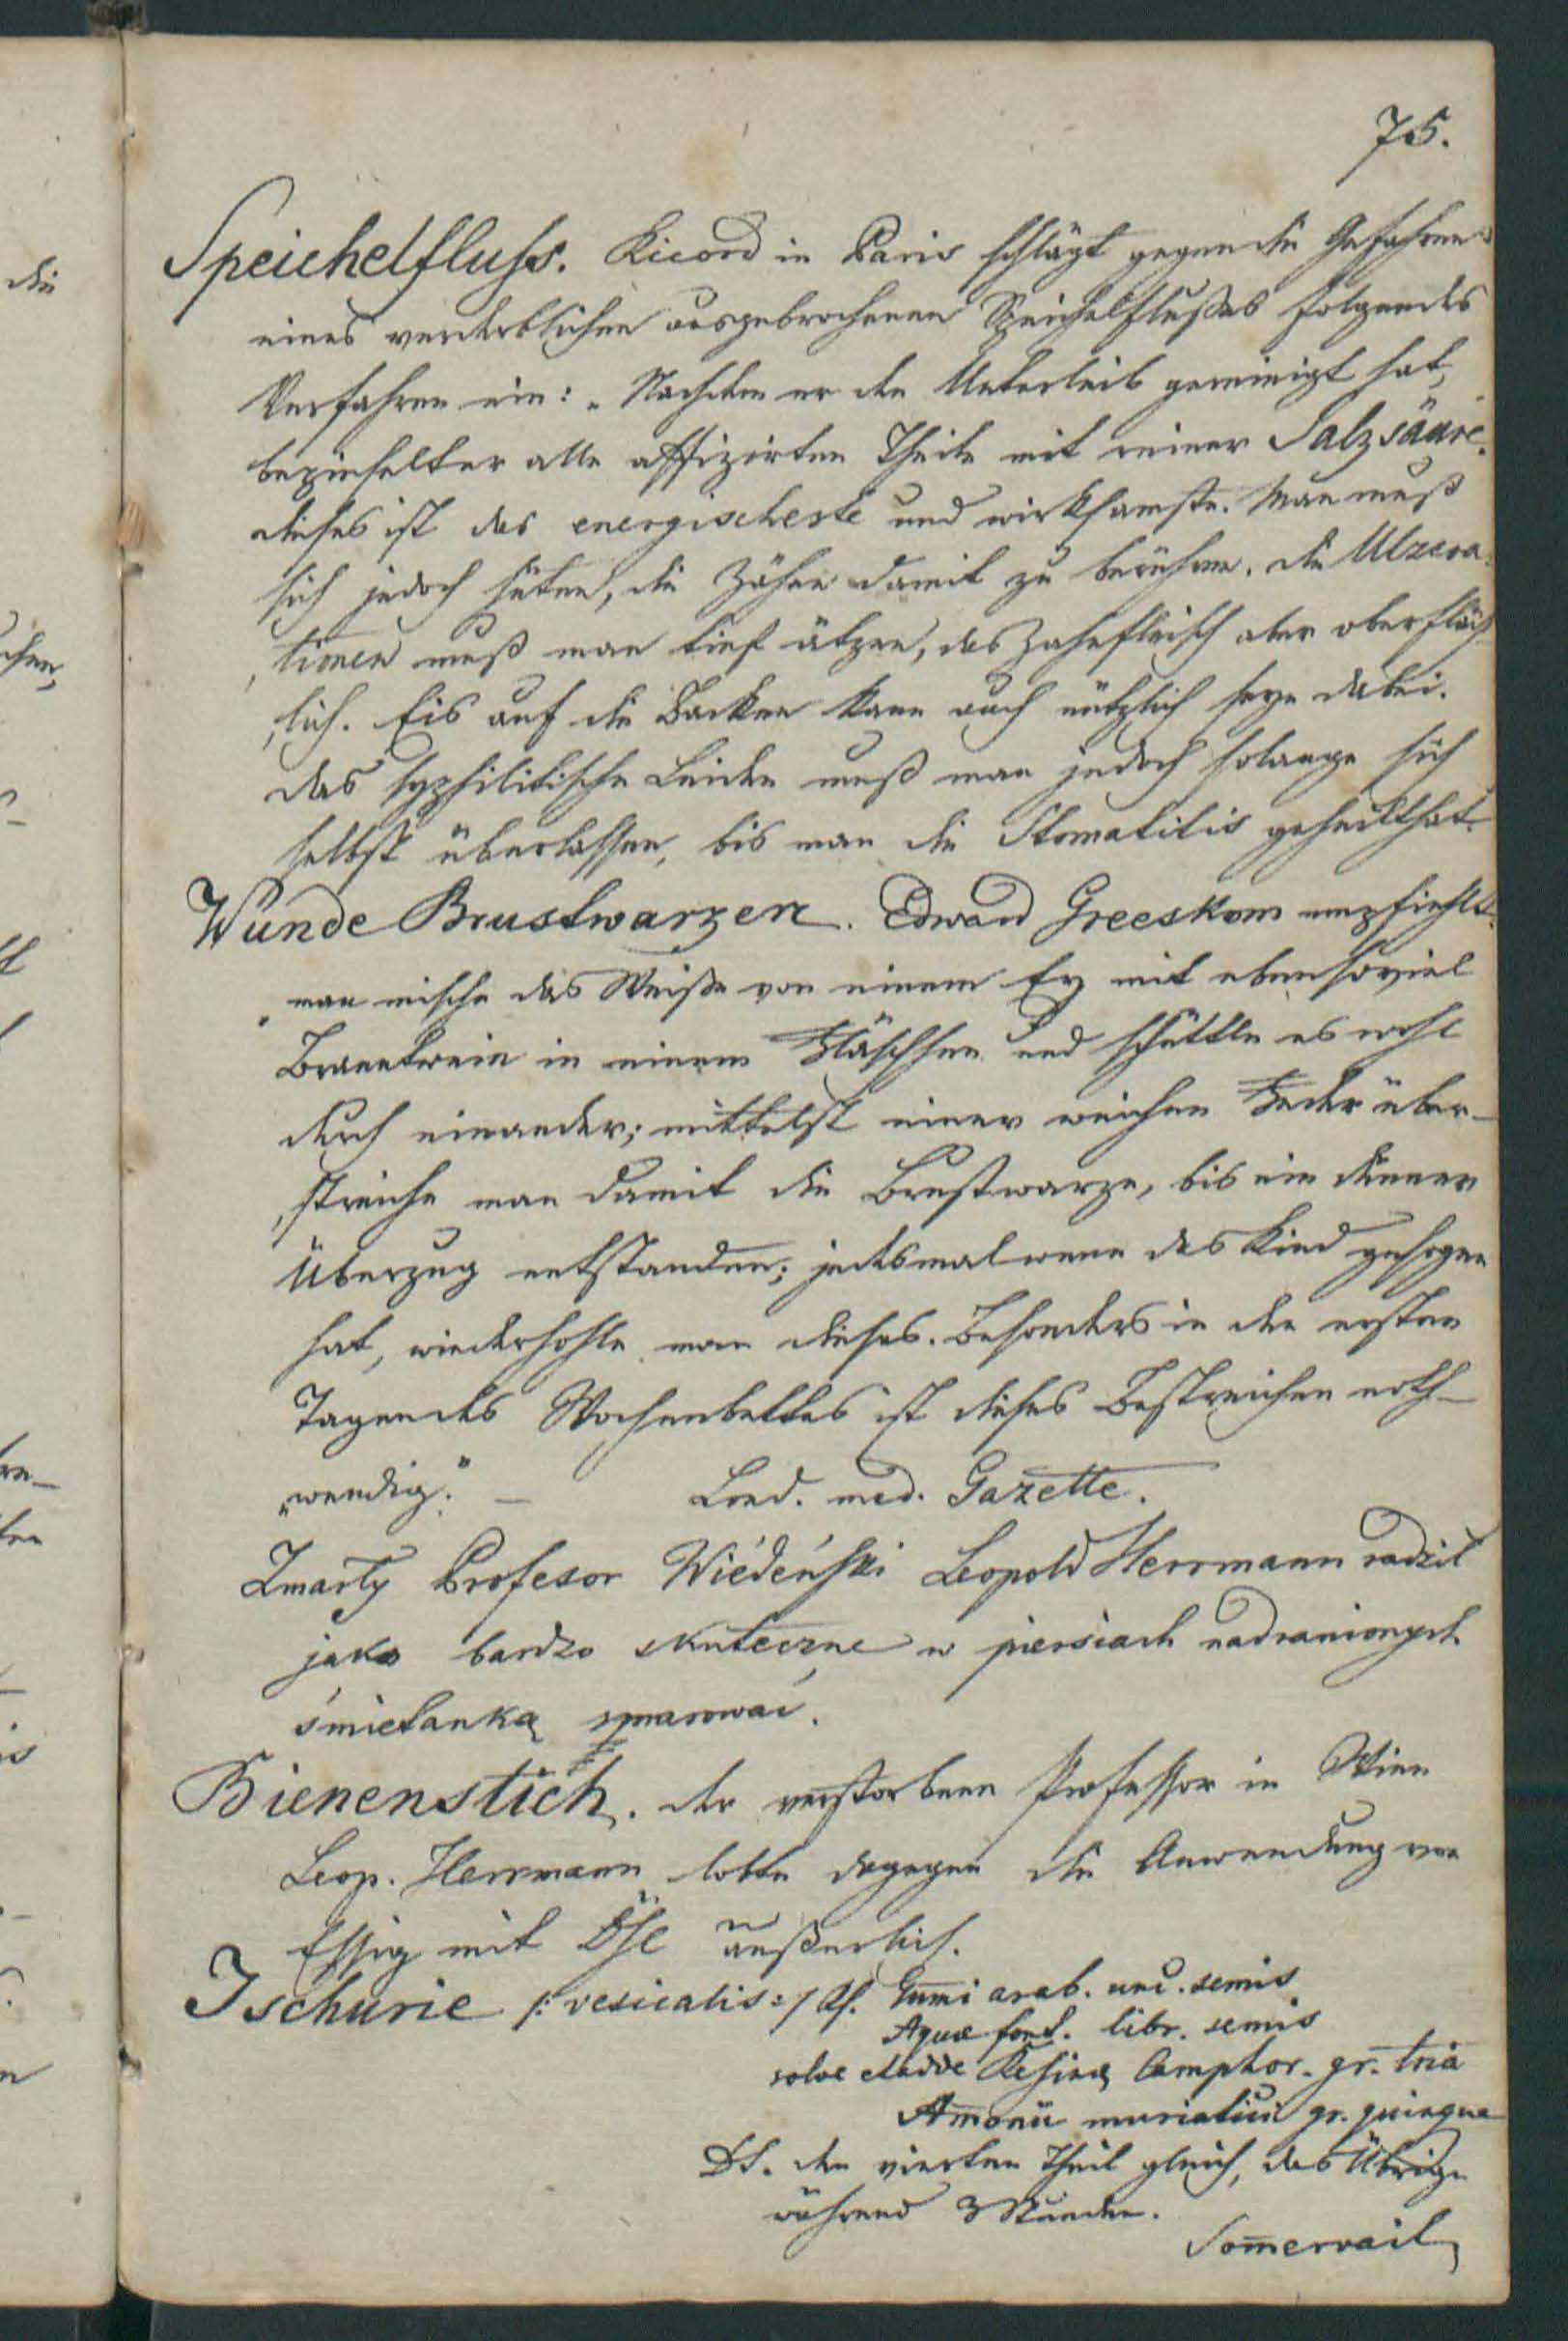 75.
Speichelfluss. Ricord in Paris schlägt gegen die Gefahren
eines verderblichen ausgebrochenen Speichelflußes folgendes
Verfahren ein: „Nachdem er den Unterleib gereinigt hat,
bepinselt er alle affizirten Theile mit reiner Salzsäure.
dieses ist das energischeste und wirksamste. Man muß
sich jedoch hüten, die Zähne damit zu berühren. die Ulzera=
tionen muß man tief ätzen, das Zahnfleisch aber oberfläch
lich. Eis auf die Backen kann auch nützlich seyn dabei.
das syphilitische Leiden muß man jedoch solange sich
selbst überlassen, bis man die Stomatitis geheilt hat.
Wunde Brustwarzen. Edward Greeskom empfiehlt.
„man mische das Weiße von einem Ey mit ebensoviel
Branntwein in einem Fläschchen und schüttle es wohl
durch einander; mittelst einer weichen Feder über-
streiche man damit die Brustwarze, bis ein dünner
Überzug entstanden; jedesmal wenn das Kind gesogen
hat, wiederhohle man dieses. Besonders in den ersten
Tagen des Wochenbettes ist dieses Bestreichen noth-
wendig." — Lond. med. Gazette.
Zmarły Profesor Wiédeński Leopold Herrmann radził
jako bardzo skuteczne w piersiach nadranionych
śmietanką smarować.
Bienenstich. der verstorbene Professor in Wien
Leop. Herrmann lobte dagegen die Anwendung von
Essig mit Öhl äußerlich.
Ischurie /: vesicalis :/ Rp. Gum̄i arab. unc. semis
Aquae font. libr. semis
solve et adde Resinae Camphor. gr. tria
Am̄onii muriatici gr. quinque
DS. den vierten Theil gleich, das Übrige
während 3 Stunden.
Som̄ervail